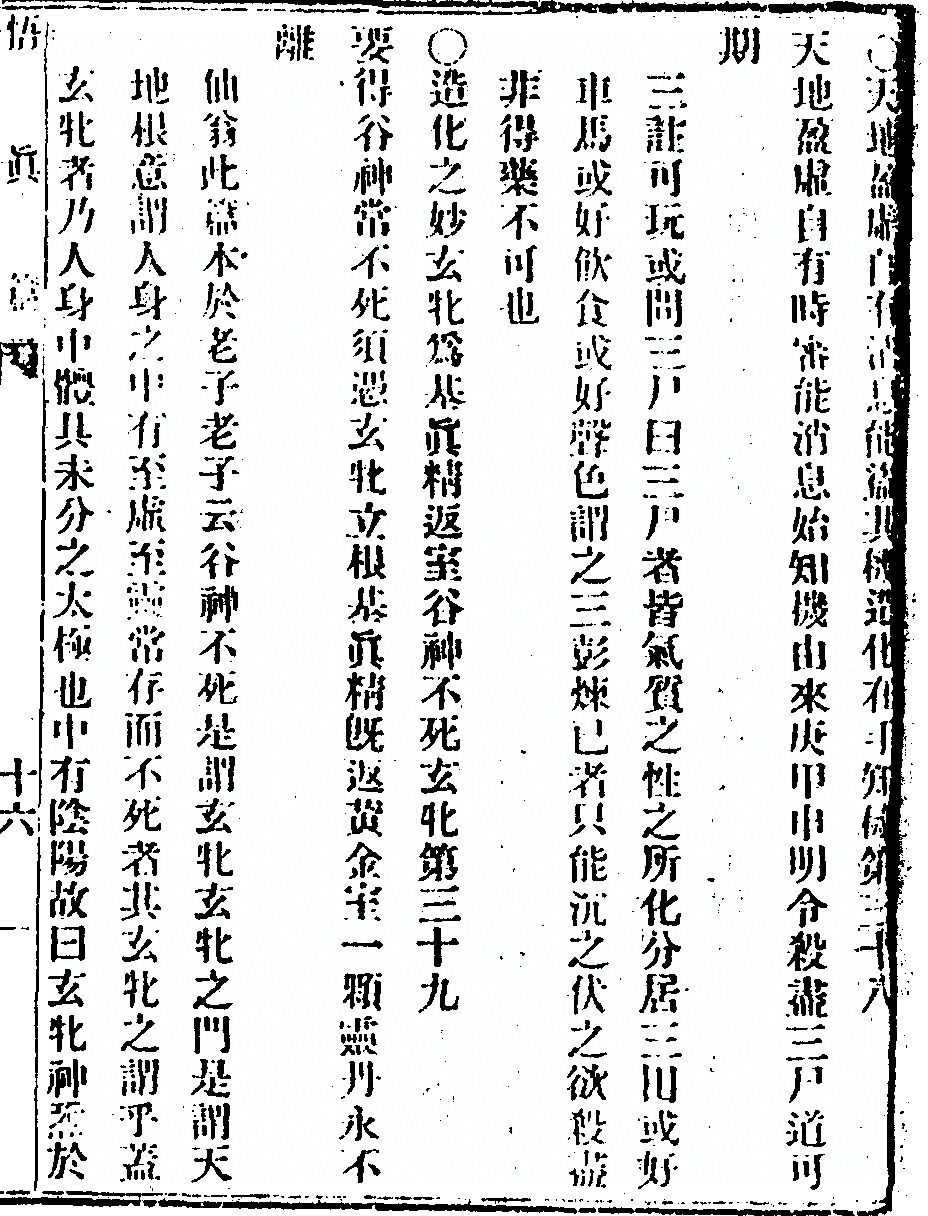 〇天地盈虛自有消息能盜其機造化在手知機第三十八
天地盈虛自有時審能消息始知機由來庚甲申明令殺盡三尸道可
期
三註可玩或問三尸曰三尸者皆氣質之性之所化分居三田或好
車馬或好飲食或好聲色謂之三彭煉己者只能沉之伏之欲殺盡
非得藥不可也
〇造化之妙玄牝爲基眞精返室谷神不死玄牝第三十九
要得谷神常不死須憑玄牝立根基眞精旣返黃金室一顆靈丹永不
離
仙翁此篇本於老子老子云谷神不死是謂玄牝玄牝之門是謂天
地根意謂人身之中有至虛至靈常存而不死者其玄牝之謂乎蓋
玄牝者乃人身中體具未分之太極也中有陰陽故曰玄牝神炁於
悟 眞 篇 十六